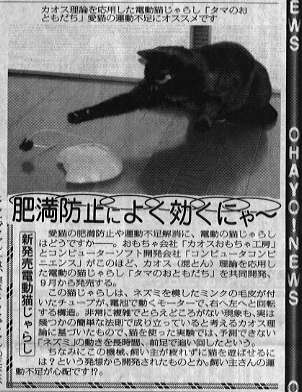 カオス理論を応用した電動猫じゃらし「タマのお
ともだち」愛猫の運動不足にオススメです
肥満防止によく効くにゃ〜
新発売電動猫じゃらし
愛猫の肥満防止や運動不足解消に、電動の猫じゃらし
はどうですか――。おもちゃ会社「カオスおもちゃ工房」
とコンピューターソフト開発会社「コンピュータコンビ
ニエンス」がこのほど、カオス（混とん）理論を応用し
た電動の猫じゃらし「タマのおともだち」を共同開発、
9月から発売する。
この猫じゃらしは、ネズミを模したミンクの毛皮が付
いたチューブが、電池で動くモーターで、右へ左へと回転
する構造。非常に複雑でとらえどころがない現象も、実は
幾つかの簡単な法則で成り立っていると考えるカオス理
論に基づいたもので、猫を使った実験では、予測できない
「ネズミ」の動きを長時間、前足で追い回したという。
ちなみにこの機械、飼い主が疲れずに猫を遊ばせるに
は？という発想から開発されたものとか。飼い主さんの運
動不足が心配です!?。
EWS OHAYO NEWS